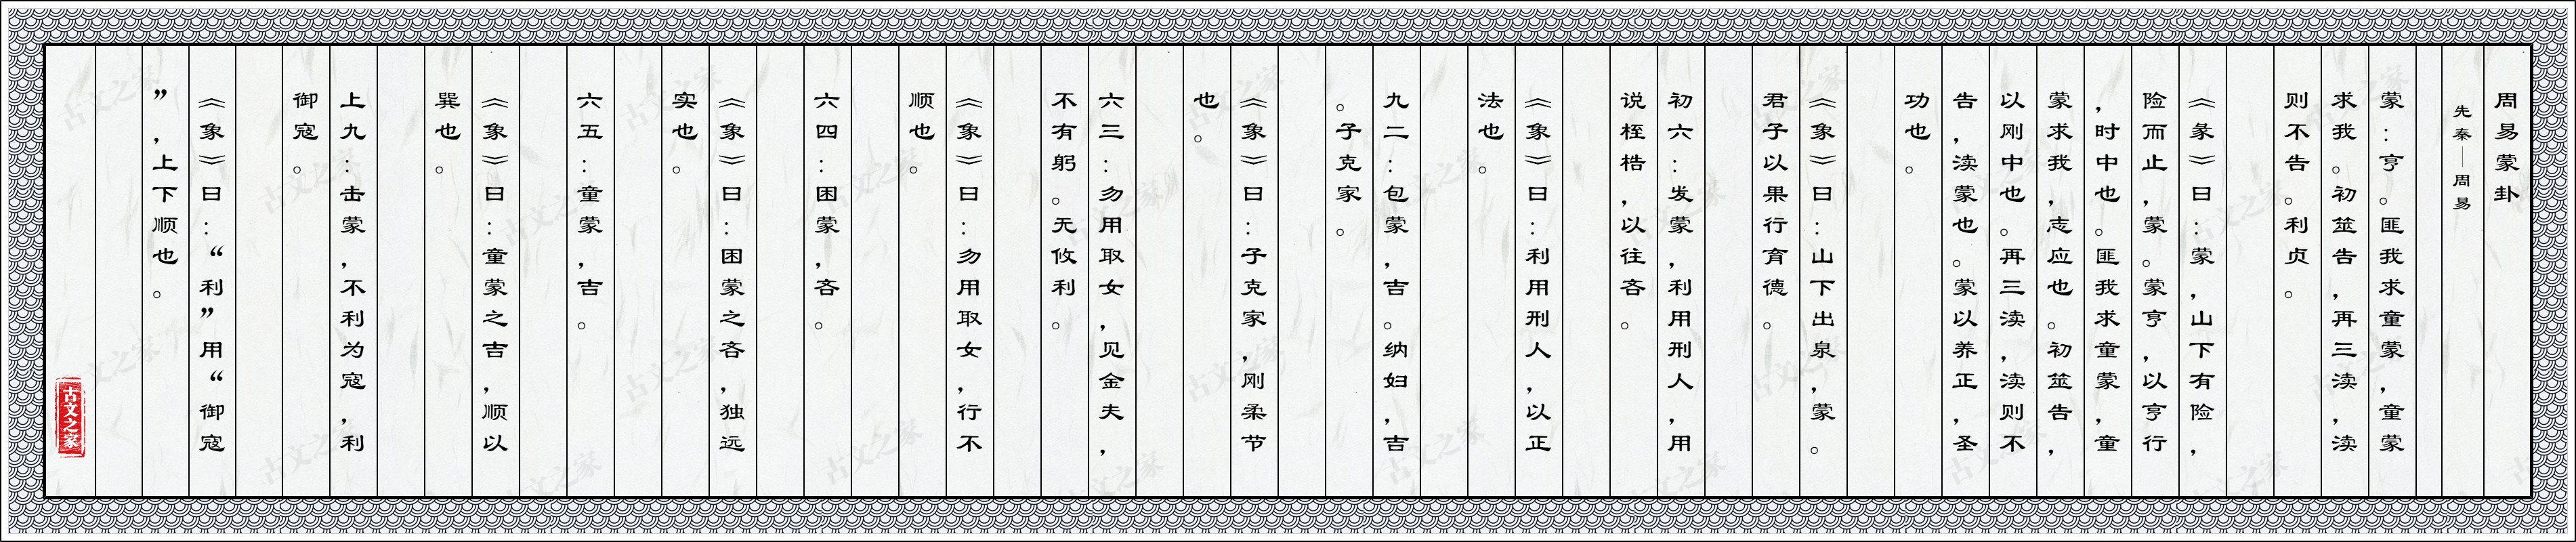 周易蒙卦
先秦—周易
蒙:亨。匪我求童蒙,童蒙
求我。初筮告,再三渎,渎
则不告。利贞。
《彖》曰:蒙,山下有险,
险而止,蒙。蒙亨,以亨行
,时中也。匪我求童蒙,童
蒙求我,志应也。初筮告,
以刚中也。再三渎,渎则不
告,渎蒙也。蒙以养正,圣
功也。
《象》曰:山下出泉,蒙。
君子以果行育德。
初六:发蒙,利用刑人,用
说桎梏,以往吝。
《象》曰:利用刑人,以正
法也。
九二:包蒙,吉。纳妇,吉
。子克家。
《象》曰:子克家,刚柔节
也。
六三:勿用取女,见金夫,
不有躬。无攸利。
《象》曰:勿用取女,行不
顺也。
六四:困蒙,吝。
《象》曰:困蒙之吝,独远
实也。
六五:童蒙,吉。
《象》曰:童蒙之吉,顺以
巽也。
上九:击蒙,不利为寇,利
御寇。
《象》曰:“利”用“御寇
”,上下顺也。
古文之家